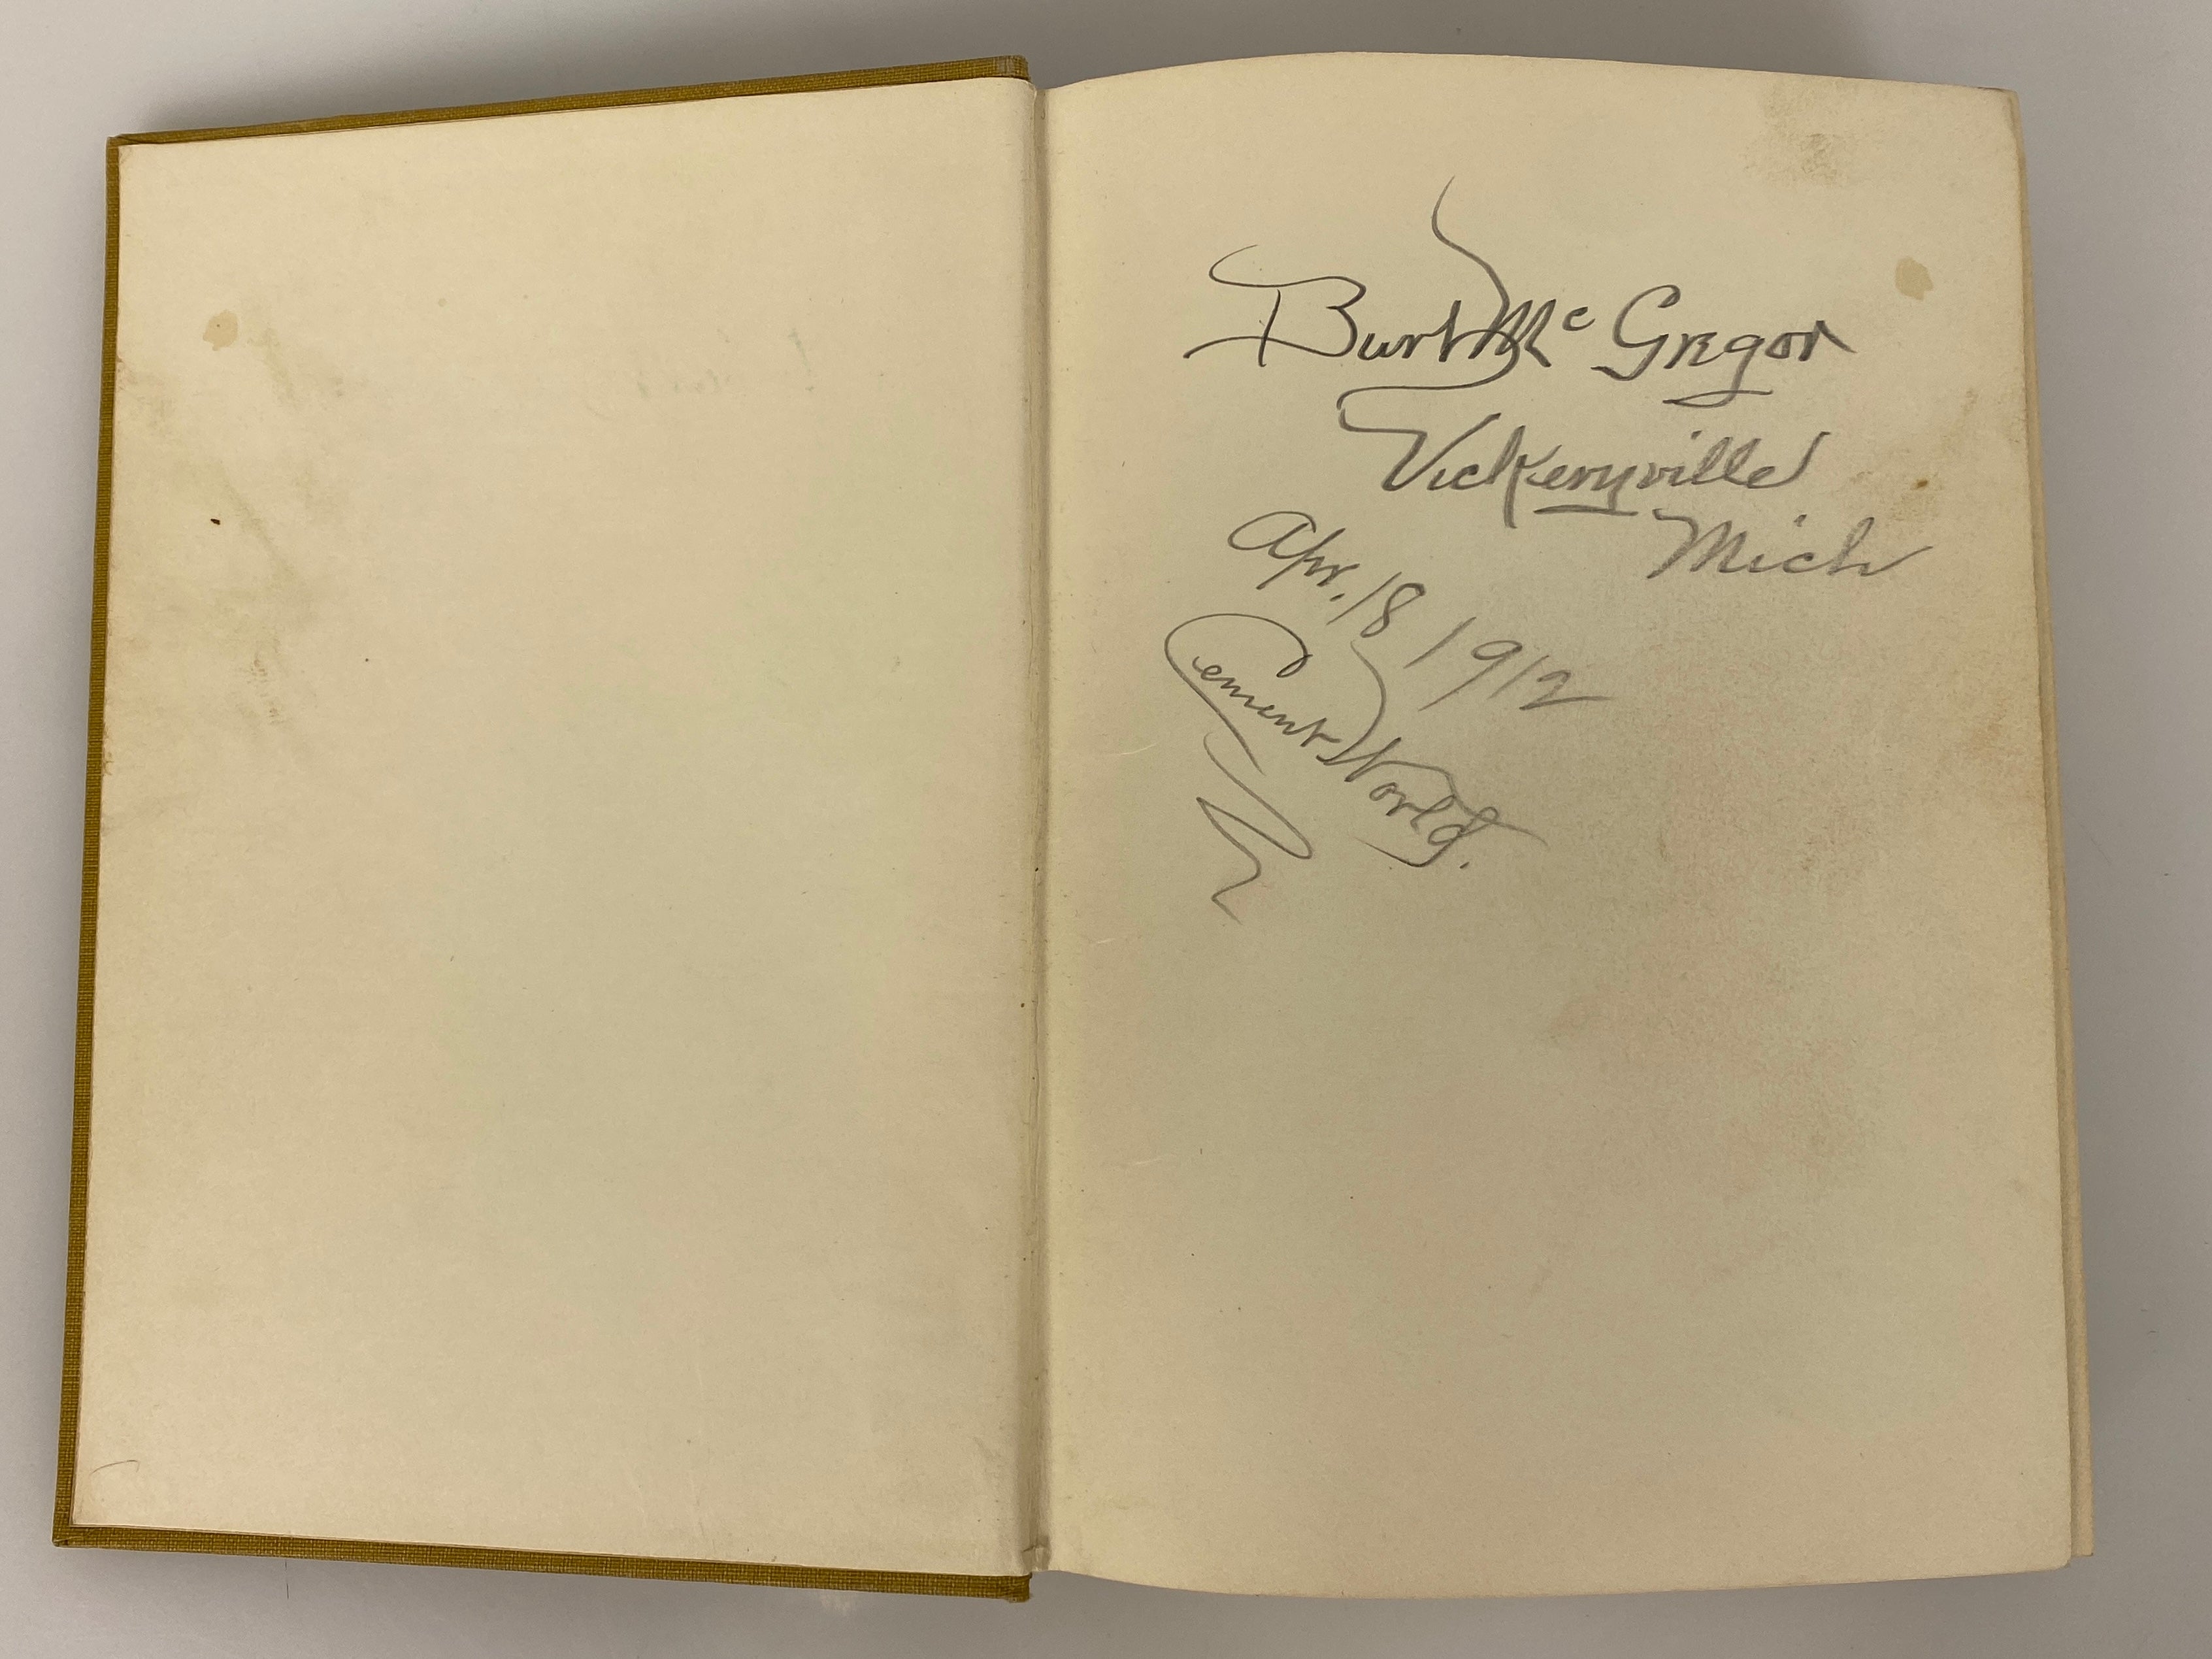 Burt Mc Gregor
Vickeryville
Mich
Apr. 18 1912
Cement World.